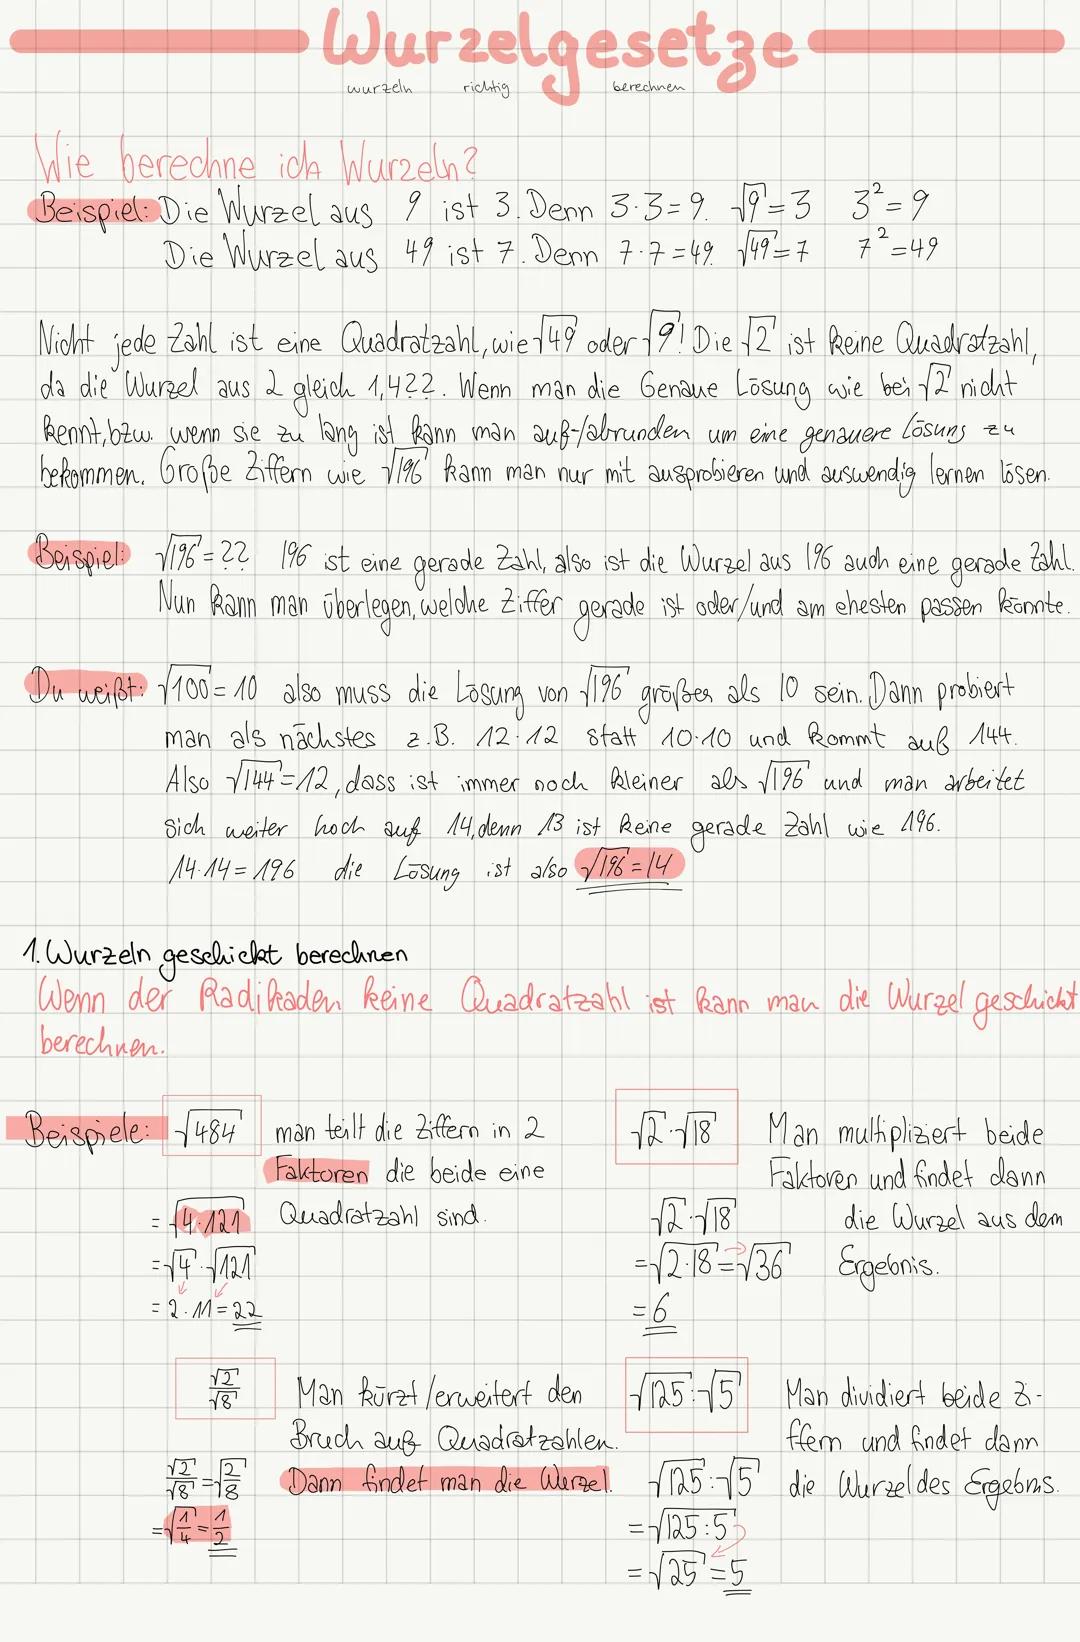 Wurzelgesetze
wurzeln richtig berechnen
Wie berechne ich Wurzeln?
Beispiel: Die Wurzel aus 9 ist 3. Denn 3·3=9. √9=3 3²=9
Die Wurzel aus 49 ist 7. Denn 7·7=49. √49=7 7²=49
Nicht jede Zahl ist eine Quadratzahl, wie √49 oder √9! Die √2 ist keine Quadratzahl,
da die Wurzel aus 2 gleich 1,4??. Wenn man die Genaue Lösung wie bei √2 nicht
kennt, bzw. wenn sie zu lang ist kann man auf-/abrunden um eine genauere Lösung zu
bekommen. Große Ziffern wie √196 kann man nur mit ausprobieren und auswendig lernen lösen.
Beispiel: √196=?? 196 ist eine gerade Zahl, also ist die Wurzel aus 196 auch eine gerade Zahl.
Nun kann man überlegen, welche Ziffer gerade ist oder/und am ehesten passen könnte.
Du weißt: √100=10 also muss die Lösung von √196 größer als 10 sein. Dann probiert
man als nächstes z.B. 12·12 statt 10·10 und kommt auf 144.
Also √144=12, dass ist immer noch kleiner als √196 und man arbeitet
sich weiter hoch auf 14, denn 13 ist keine gerade Zahl wie 196.
14·14=196 die Lösung ist also √196=14
1. Wurzeln geschickt berechnen
Wenn der Radikaden keine Quadratzahl ist kann man die Wurzel geschickt
berechnen.
Beispiele: √484 man teilt die Ziffern in 2
Faktoren die beide eine
= √4·121 Quadratzahl sind.
= √4·√121
= 2·11=22
√2·√18 Man multipliziert beide
Faktoren und findet dann
√2·√18 die Wurzel aus dem
= √2·18 = √36 Ergebnis.
= 6
√2/√8 Man kürzt/erweitert den
Bruch auf Quadratzahlen.
√2/√8 = √2/8 Dann findet man die Werzel.
= √1/4 = 1/2
√125:√5 Man dividiert beide Zi-
ffern und findet dann
√125:√5 die Wurzel des Ergebnis.
= √125:5
= √25 = 5